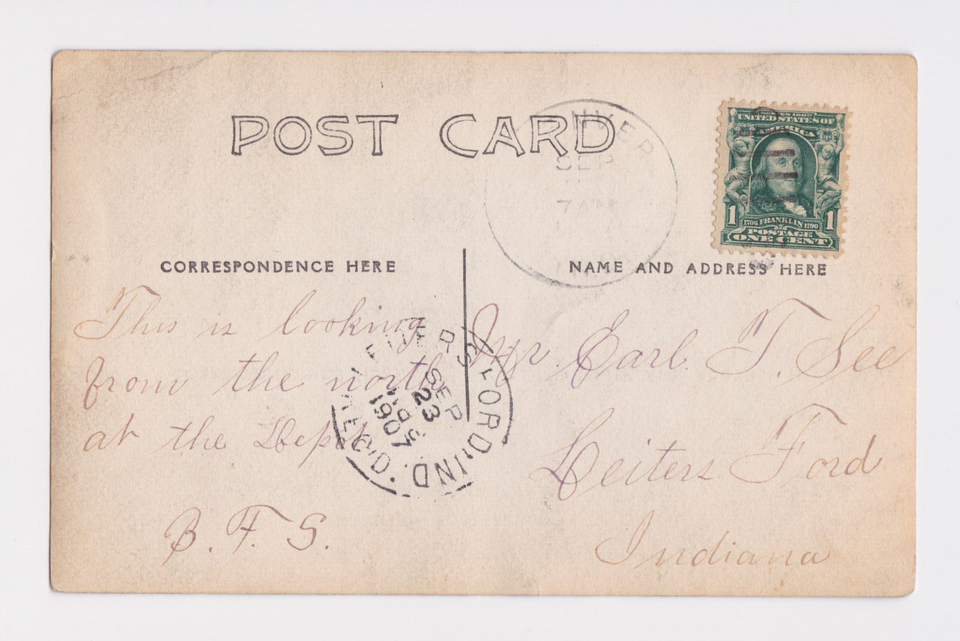 POST CARD
SEP
7 AM
UNITED STATES OF
AMERICA
1 1706 FRANKLIN 1790 1
POSTAGE
ONE CENT
CORRESPONDENCE HERE
NAME AND ADDRESS HERE
This is looking
from the north
at the Depot
B. F. S.
Mr. Earl. T. See
Leiters Ford
Indiana
LEITERS FORD, IND.
REC'D.
SEP
23
1907